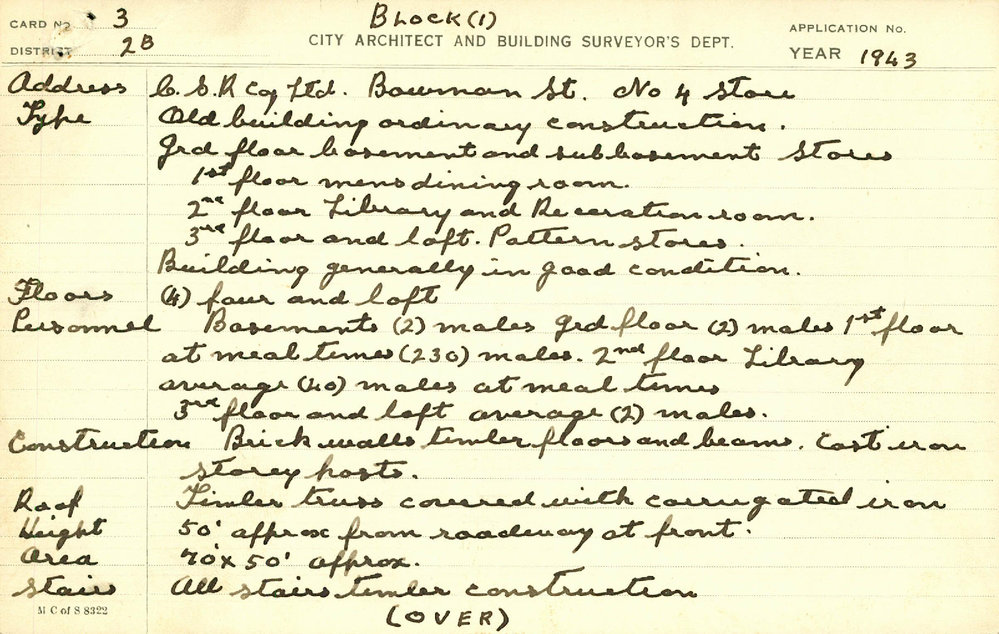 CARD No 3 BLOCK (1) APPLICATION No.
DISTRICT 2B CITY ARCHITECT AND BUILDING SURVEYOR'S DEPT. YEAR 1943
Address C.S.R Coy Ltd. Bowman St. No 4 Store
Type Old building ordinary construction.
Grd floor basement and subbasement Stores
1st floor mens dining room.
2nd floor Library and Receration room.
3rd floor and loft. Pattern stores.
Building generally in good condition.
Floors (4) four and loft
Personnel Basements (2) males Grd floor (2) males 1st floor
at meal times (230) males. 2nd floor Library
average (40) males at meal times
3rd floor and loft average (2) males.
Construction Brick walls timber floors and beams. Cast iron
storey posts.
Roof Timber truss covered with corrugated iron
Height 50' approx from roadway at front.
Area 70' x 50' approx.
Stairs All stairs timber construction
M C of S 8322
(OVER)